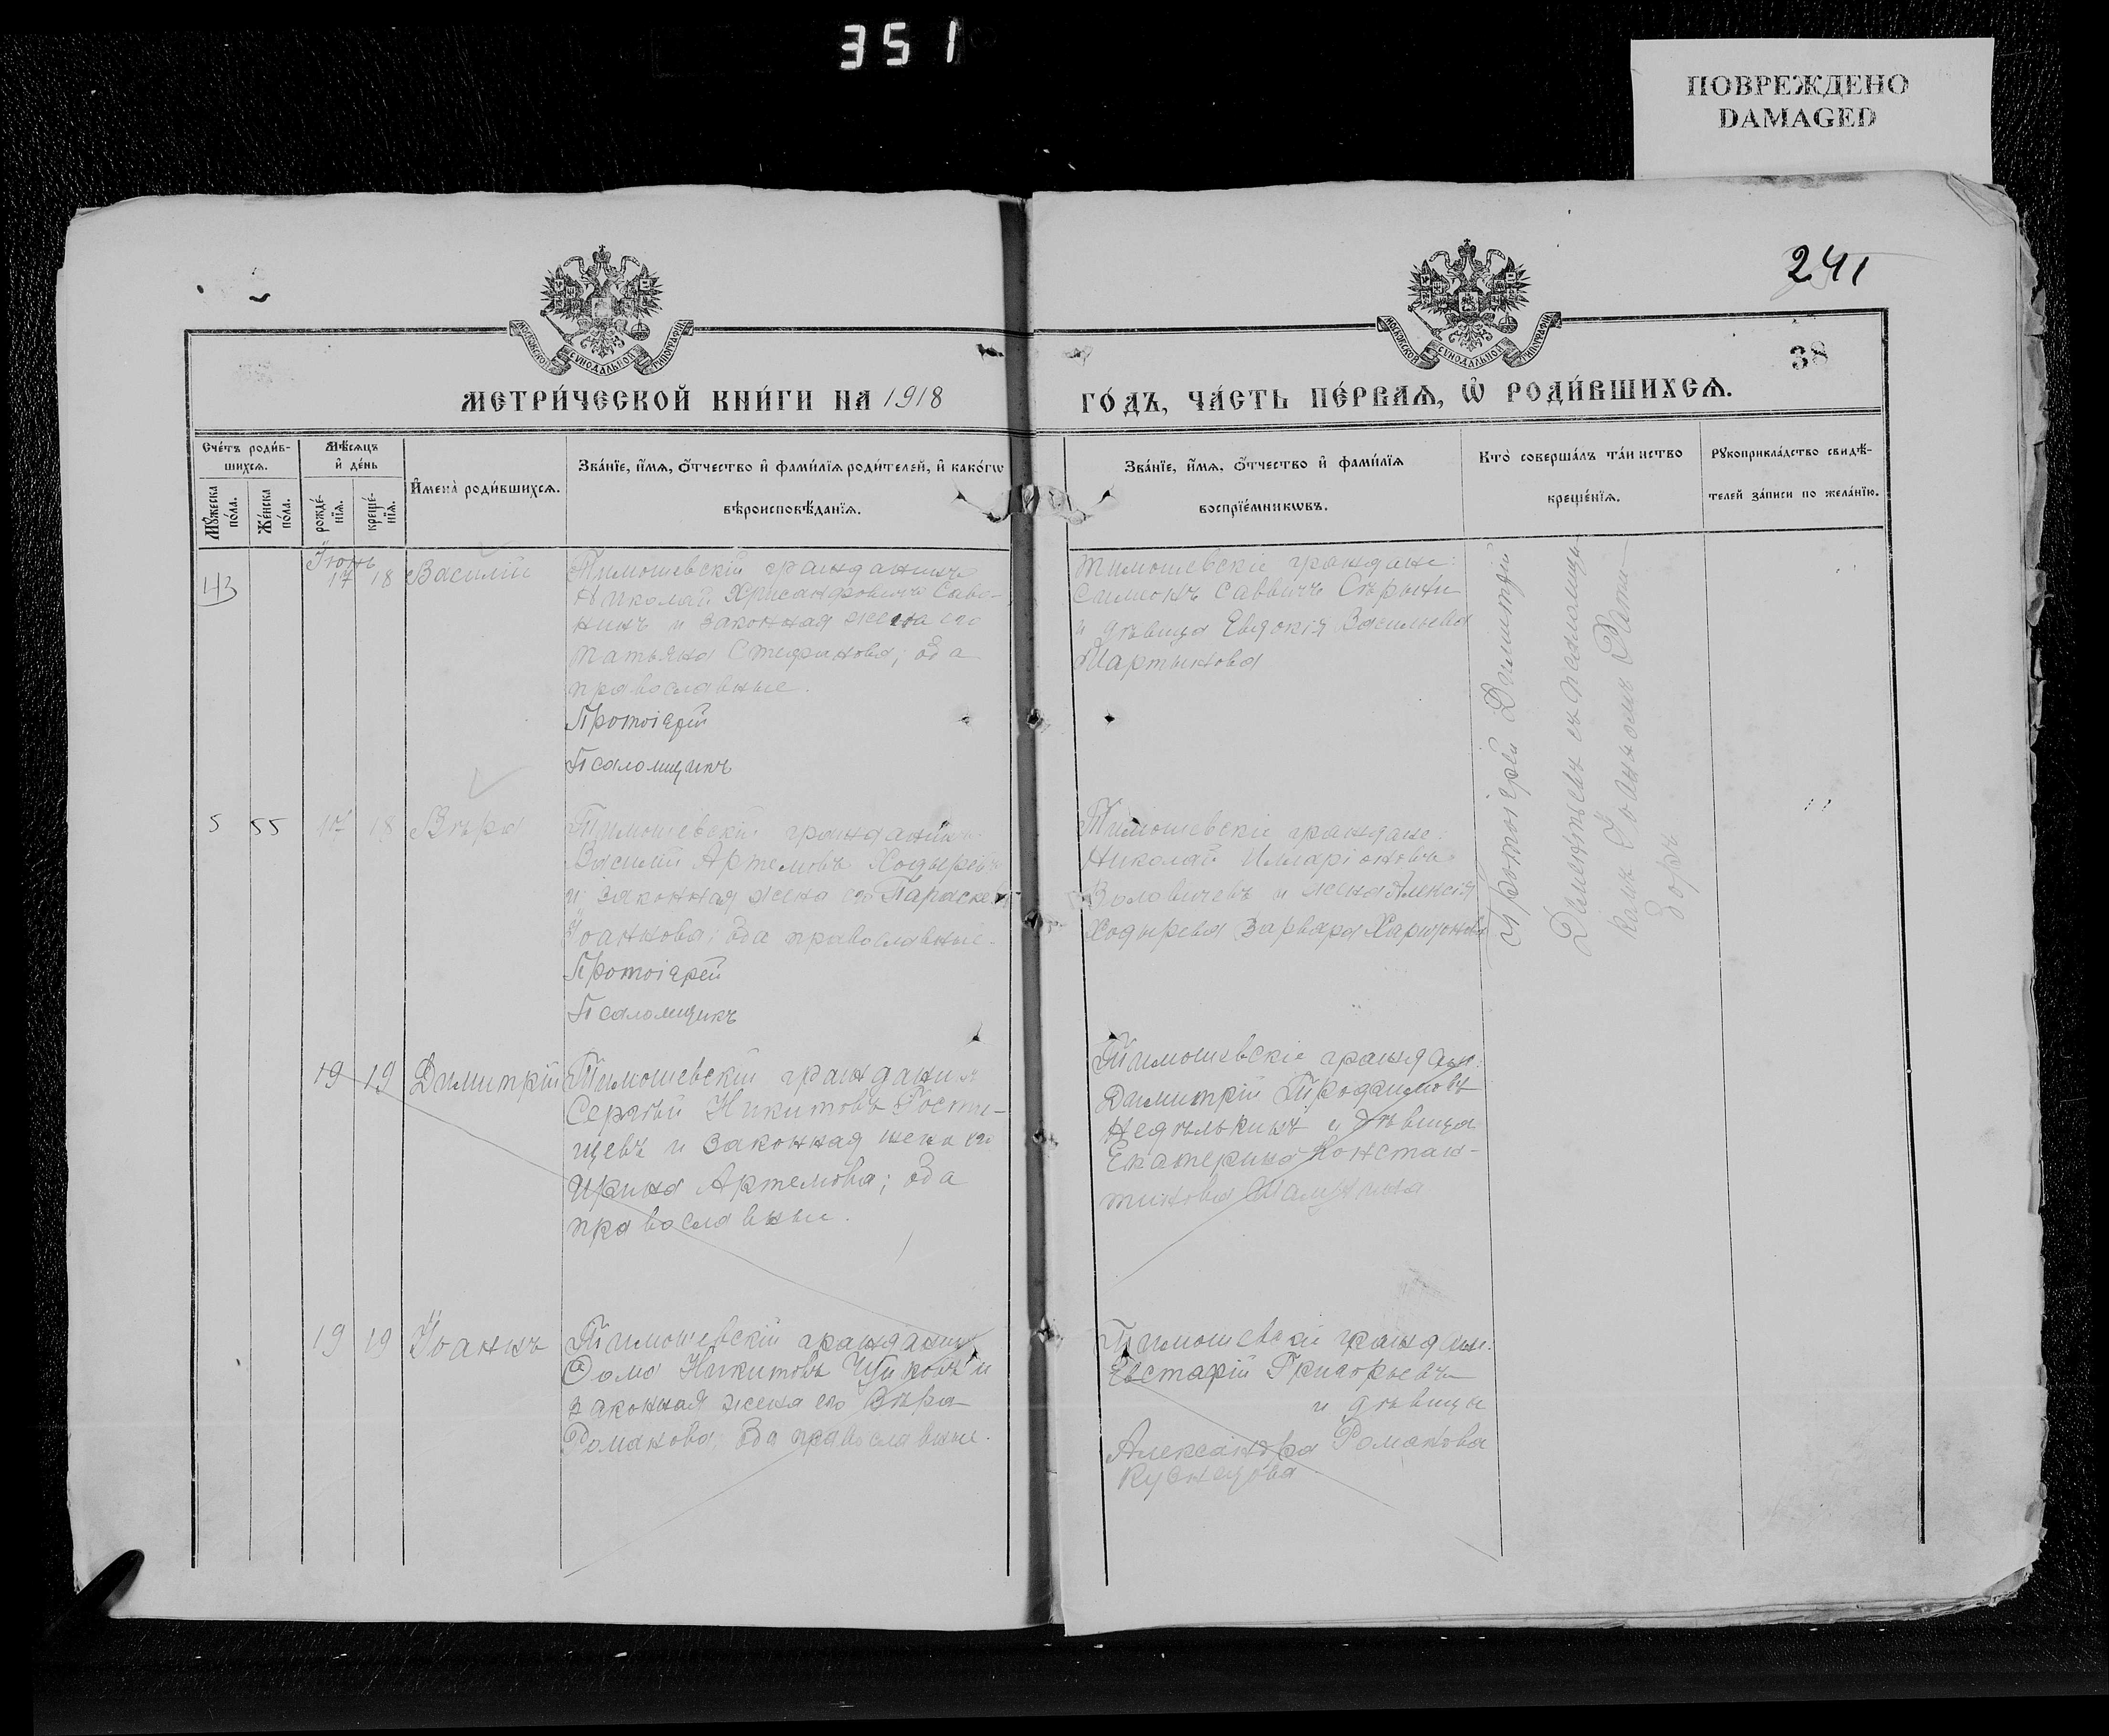 351
ПОВРЕЖДЕНО
DAMAGED
241
38
МОСКОВСКОЙ СѴНОДАЛЬНОЙ ТИПОГРАФІИ
МОСКОВСКОЙ СѴНОДАЛЬНОЙ ТИПОГРАФІИ
МЕТРИ́ЧЕСКОЙ КНИ́ГИ НА 1918
ГО́ДЪ, ЧА́СТЬ ПЕ́РВАѦ, Ѡ҆ РОДИ́ВШИХСѦ.
Сче́тъ роди́в-
шихсѧ.
Мꙋ́жеска по́ла.
Же́нска по́ла.
Мѣ́сѧцъ
и҆ де́нь
рожде́-
нїѧ.
креще́-
нїѧ.
И҆мена̀ роди́вшихсѧ.
Зва́нїе, и҆́мѧ, ѻ҆́тчество и҆ фами́лїѧ роди́телей, и҆ како́гѡ
вѣроисповѣ́данїѧ.
Зва́нїе, и҆́мѧ, ѻ҆́тчество и҆ фами́лїѧ
воспрїе́мникѡвъ.
Кто̀ соверша́лъ та́инство
креще́нїѧ.
Рꙋкоприкла́дство свидѣ́-
телей за́писи по жела́нїю.
Іюнь
43 17 18 Василій
Тимошевскій гражданинъ
Николай Хрисанфовичъ Саво-
нинъ и законная жена его
Татьяна Стефанова; оба
православные.
Протоіерей
Псаломщикъ
Тимошевскіе граждане:
Симеонъ Саввичъ
и дѣвица Евдокія Васильева
Мартынова
Протоіерей Димитрій
Дементьевъ съ псаломщи-
комъ Іоанномъ
5 55 17 18 Вѣра
Тимошевскій гражданинъ
Василій Артемовъ Ходыревъ
и законная жена его Параскева
Іоаннова; оба православные.
Протоіерей
Псаломщикъ
Тимошевскіе граждане:
Николай Илларіоновъ
и жена Алексія
Ходырева Варвара Харитонова
19 19 Димитрій
Тимошевскій гражданинъ
Сергѣй Никитовъ
и законная жена его
Ирина Артемова; оба
православные.
Тимошевскіе граждане:
Димитрій Трофимовъ
Недѣлькинъ и дѣвица
Екатерина Констан-
тинова
19 19 Іоаннъ
Тимошевскій гражданинъ
Ѳома Никитовъ и
законная жена его Вѣра
Романова; оба православные.
Тимошевскіе граждане:
Григорьевъ
и дѣвица
Александра Романова
Кузнецова